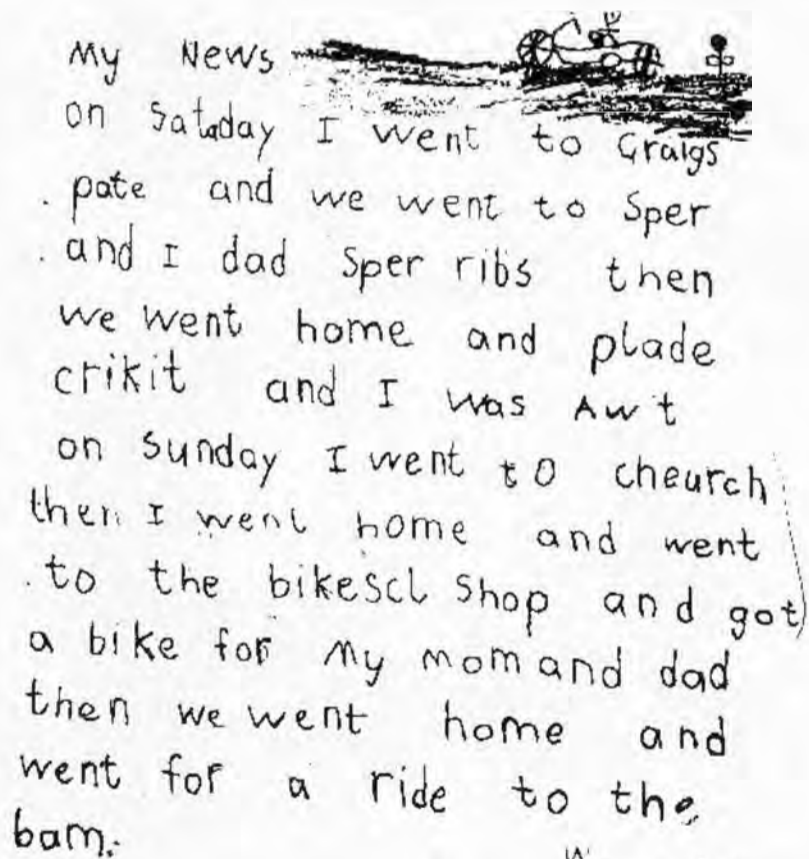 My News
on Sataday I went to Graigs
pate and we went to Sper
and I dad Sper ribs then
we went home and plade
crikit and I was Awt
on Sunday I went to cheurch
then I went home and went
to the bikescl Shop and got
a bike for My mom and dad
then we went home and
went for a ride to the
bam.